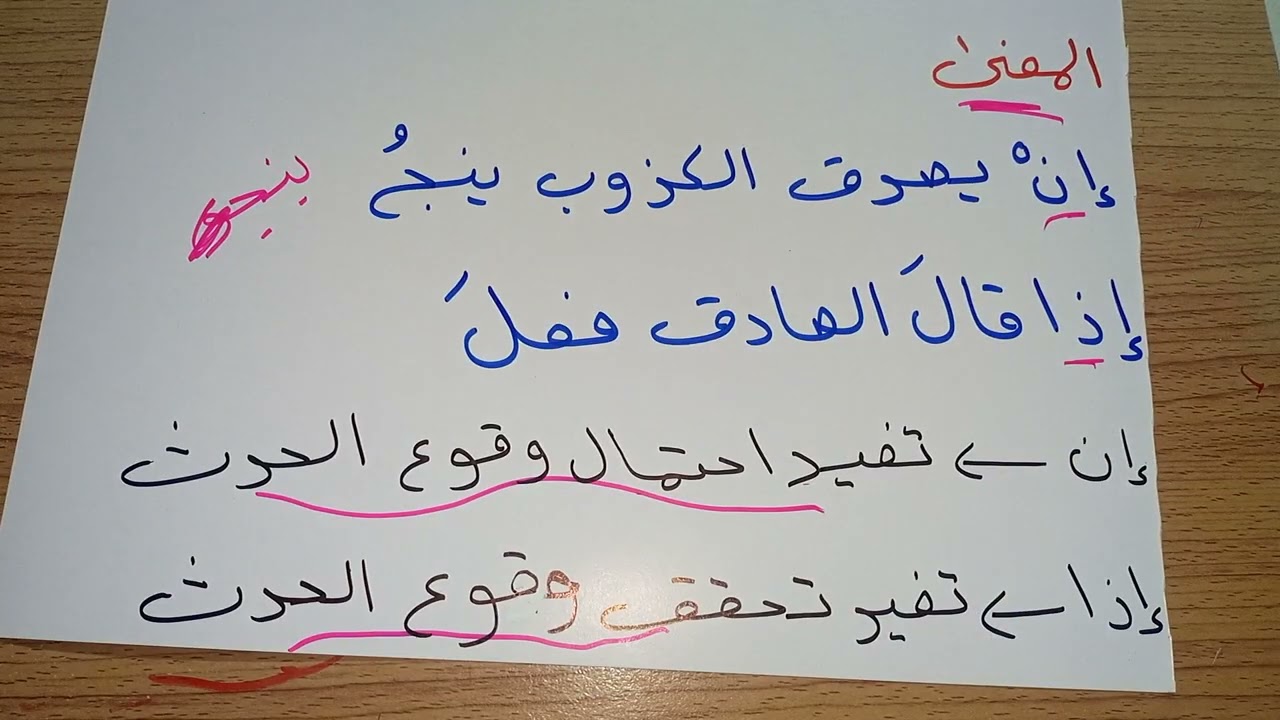 المعنى
إنْ يصدق الكذوب ينجُ ينجو
إذا قالَ الصادق فعلَ
إن ← تفيد احتمال وقوع الحدث
إذا ← تفيد تحقق وقوع الحدث